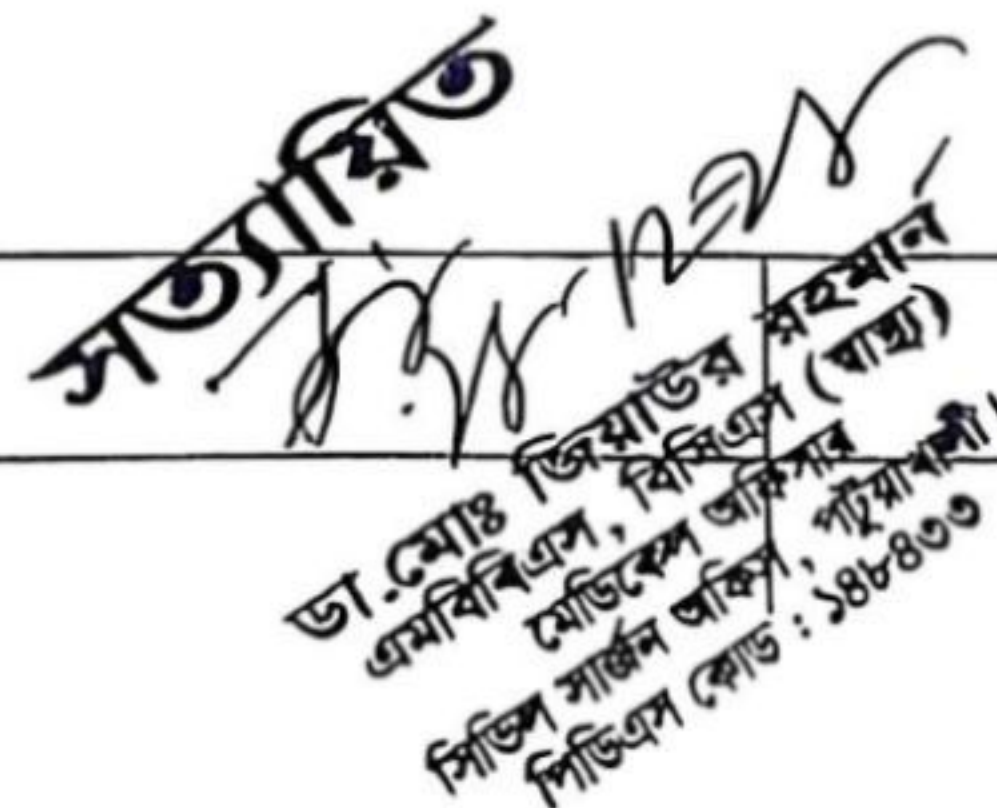 সত্যায়িত
ডা.মোঃ জিয়াউর রহমান
এমবিবিএস, বিসিএস (স্বাস্থ্য)
মেডিকেল অফিসার
সিভিল সার্জন অফিস, পটুয়াখালী।
পিডিএস কোড : ১৪৮৪৩৩